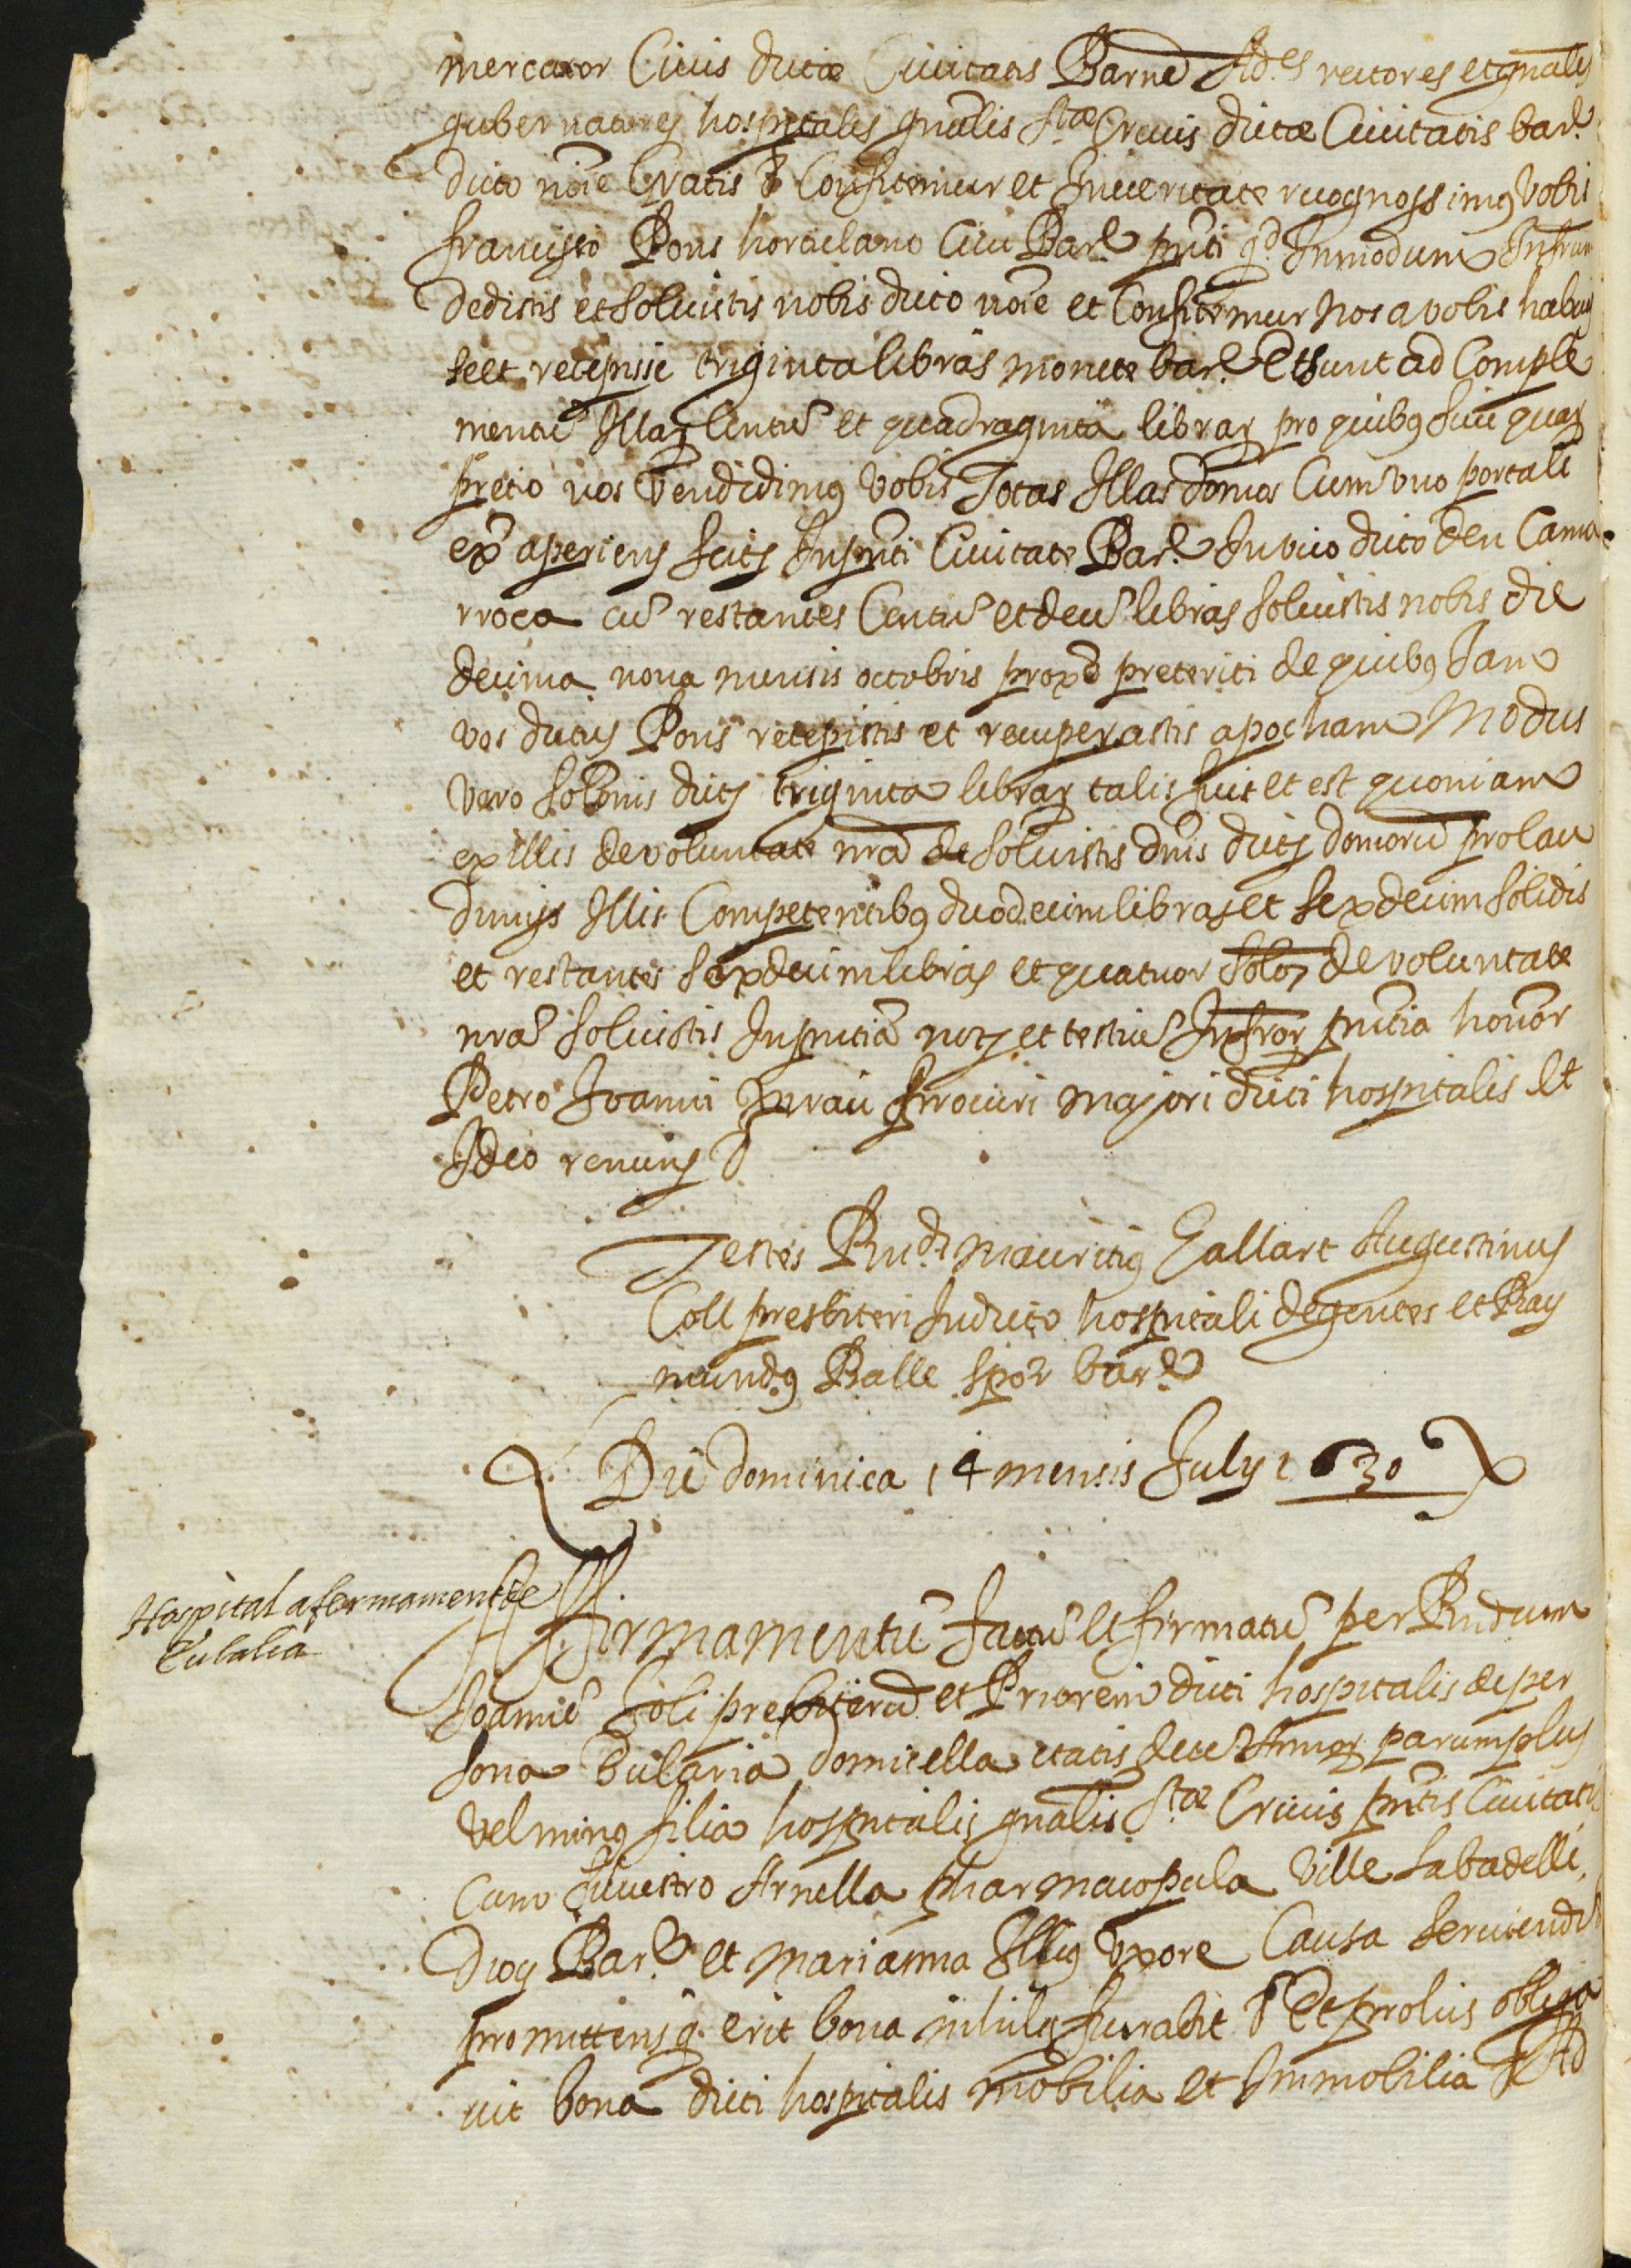 mercator Civis dictæ Civitatis Barne Ad.es rectores et gnales
gubernatores hospitalis gnalis Stæ Crucis dictæ Civitatis bar.e
dicto noie Gratis & Confitemur et In veritate recognossimus Vobis
francisco Pons hortelano Civi Bar.e pnti qd In modum Infrum
dedistis et solvistis nobis dicto noie et Confitemur nos a vobis habuis
se et recepisse triginta libras monete bar.e Et sunt ad Comple
mentu Illar Centu et quadraginta librar pro quibus sive quar
pretio nos Vendidimus Vobis Totas Illas domos Cum uno portali
ex aperiens scitis In pnti Civitate Bar.e In vico dicto den Cama
rroca cu restantes Centu et decu libras solvistis nobis die
decima nona mensis octobris prox.o preteriti de quibus Iam
vos dictus Pons recepistis et recuperastis apocham Modus
vero solonis dictis triginta librar talis fuit et est quoniam
ex illis de voluntate nra de solvistis dnis dictis domoru pro lau
dimiis Illis Competentibus duodecim libras et sexdecim solidis
et restantes sexdecim libras et quatuor solos de voluntate
nra solvistis In pntia notis et testiu Infror pntia honor
Petro Joanni Jurau Procuri majori dicti hospitalis et
Ideo renuns &
Testes Rnd.i Mauritius Gallart Augustinus
Coll presbiteri In dicto hospitali degentes et Ray
mundus Balle spor bar.e
Die dominica 14 mensis July 1630
Hospital afermament de
Eulalia
Affirmamentu factu et firmatu per Rndum
Joanne Soli presbiteru et Priorem dicti hospitalis de per
sona Eularia domicella etatis dece Annor parum plus
vel minus filia hospitalis gnalis Stæ Crucis pntis Civitatis
Cum Silvestro Arnella pharmacopula Ville Sabadelli
Diocs Bar.e et Marianna Illius Uxore Causa serviendi &
promittens q. erit bona nihilqs furabit & Et pro his obliga
vit bona dicti hospitalis mobilia et Immobilia & Ad